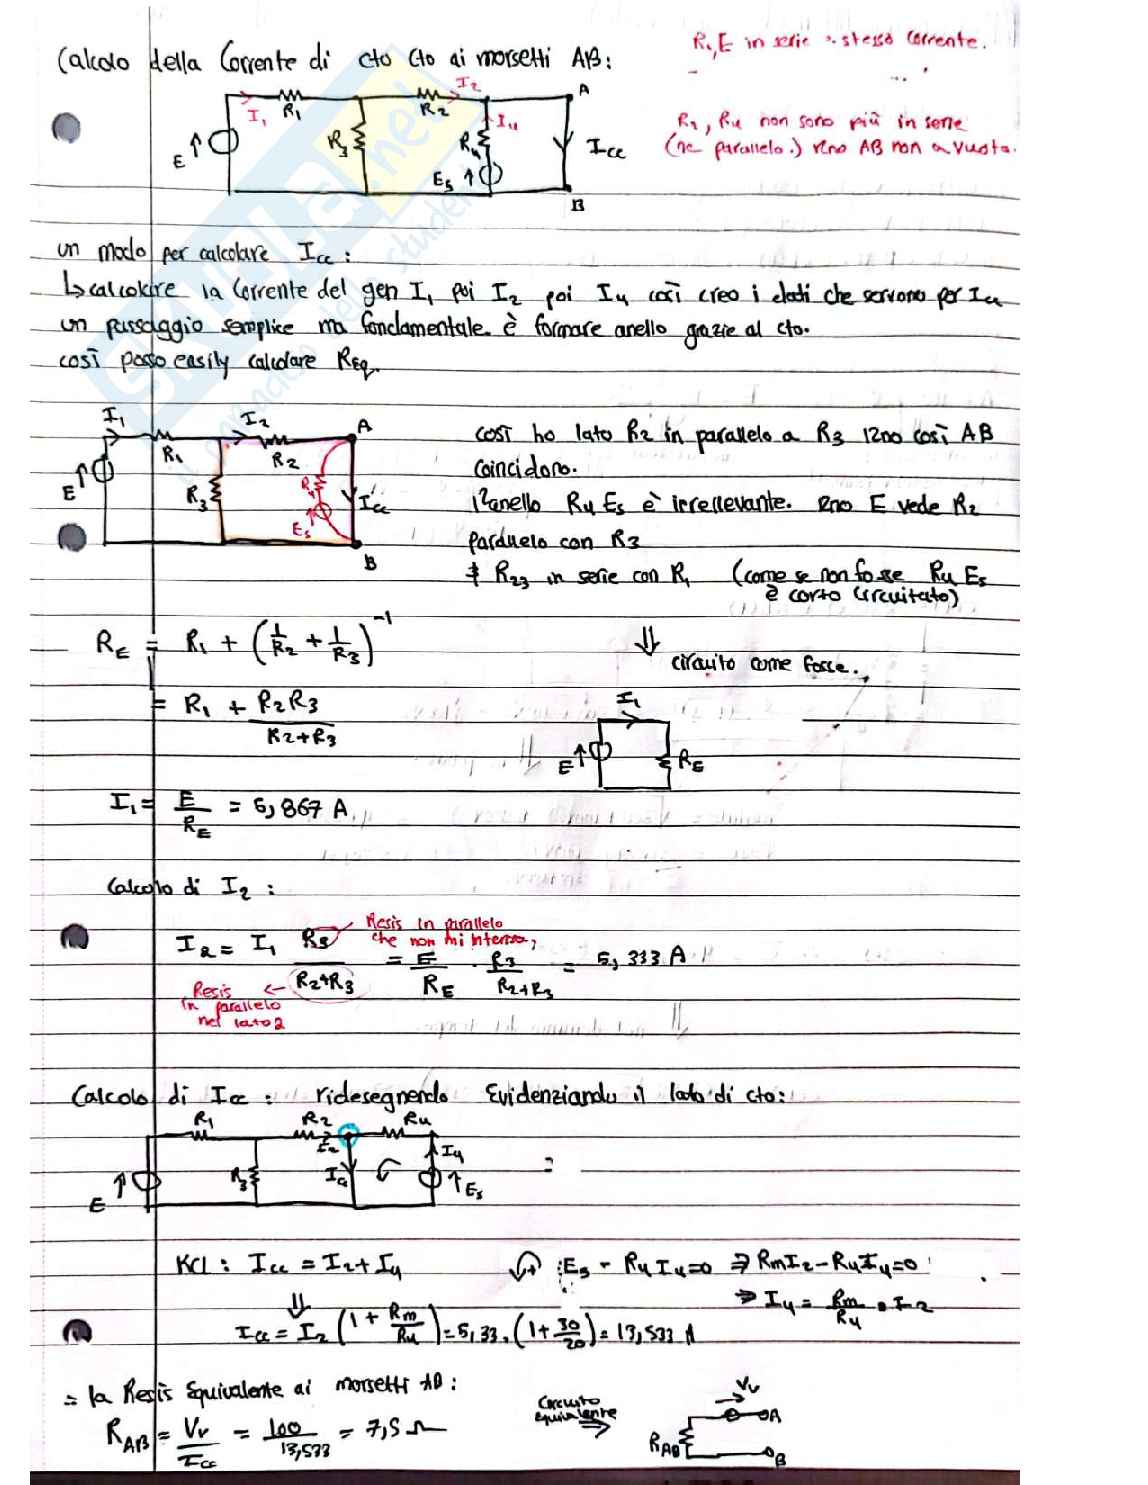 R1, E in serie → stessa corrente.
Calcolo della Corrente di cto cto ai morsetti AB:
I1 R1 R2 I2 A
R2, R4 non sono più in serie
(ne parallelo.) AB non a vuoto.
E R3 R4 I4 Icc
Es
B
un modo per calcolare Icc:
↳ calcolare la Corrente del gen I1 poi I2 poi I4 così creo i dati che servono per Icc
un passaggio semplice ma fondamentale è formare anello grazie al cto.
così posso easily calcolare REq.
I1 I2 A
R1 R2
E R3 R4 Icc
Es
B
così ho lato R2 in parallelo a R3 così AB
coincidono.
l'anello R4 Es è irrellevante. E vede R2
parallelo con R3
R23 in serie con R1 (come se non fosse R4 Es
è corto circuitato)
RE = R1 + (1/R2 + 1/R3)^-1
⇓ circuito come fosse.
= R1 + R2R3/R2+R3
I1
E RE
I1 = E/RE = 5,867 A
Calcolo di I2:
Resis in parallelo
che non mi interessa
I2 = I1 R3/R2+R3 = E/RE · R3/R2+R3 = 5,333 A
Resis
in parallelo
nel lato 2
Calcolo di Icc: ridesegnendo Evidenziando il lato di cto:
R1 R2 R4
I2 I4
E R3 Icc Es
KCL: Icc = I2+I4
Es - R4 I4=0 ⇒ RmI2-R4I4=0
⇒ I4 = Rm/R4 · I2
⇓
Icc = I2 (1 + Rm/R4) = 5,33 · (1+ 30/20) = 13,533 A
= la Resis Equivalente ai morsetti AB:
RAB = Vv/Icc = 100/13,533 = 7,5 Ω
Circuito
equivalente
⇒
Vv
A
RAB
B